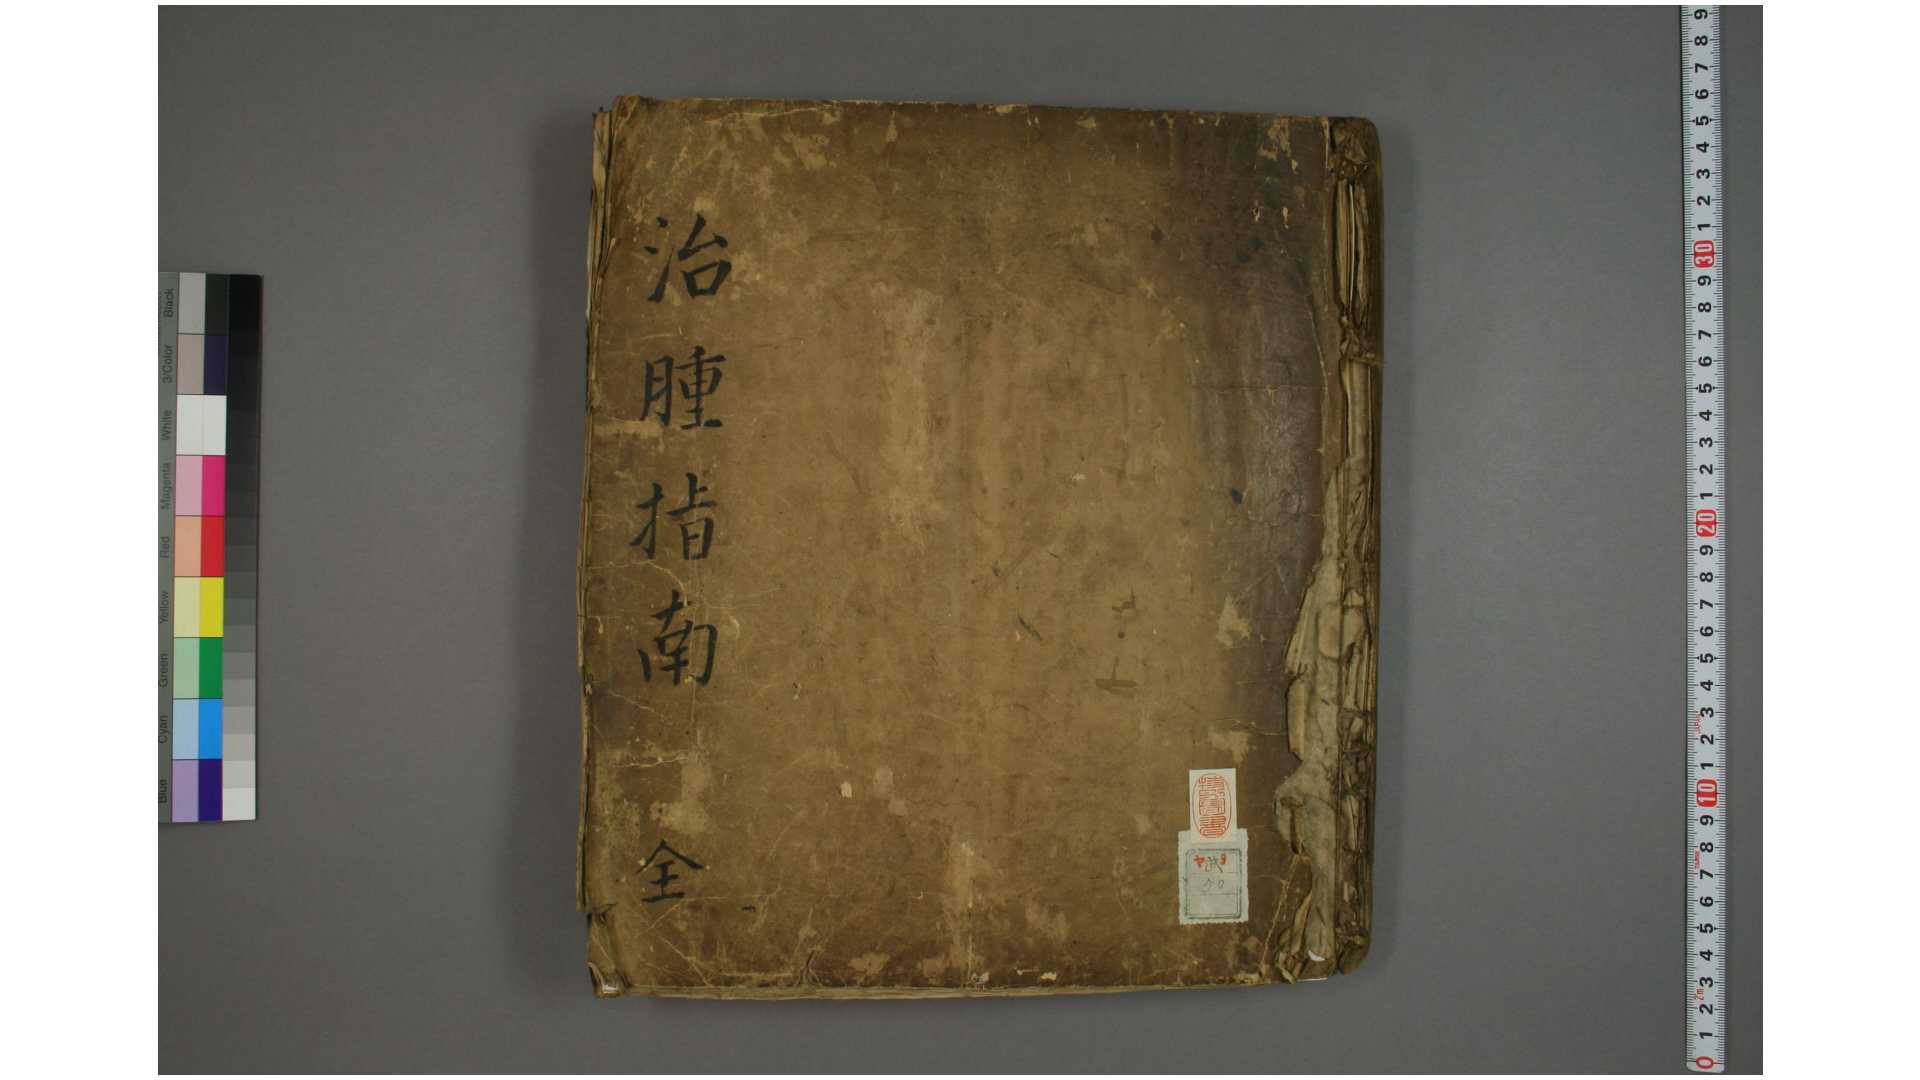 治腫指南 全
Black
3/Color
White
Magenta
Red
Yellow
Green
Cyan
Blue
9
8
7
6
5
4
3
2
1
30
9
8
7
6
5
4
3
2
1
20
9
8
7
6
5
4
3
2
1
10
9
8
7
6
5
4
3
2
1
0
2m
JAPAN